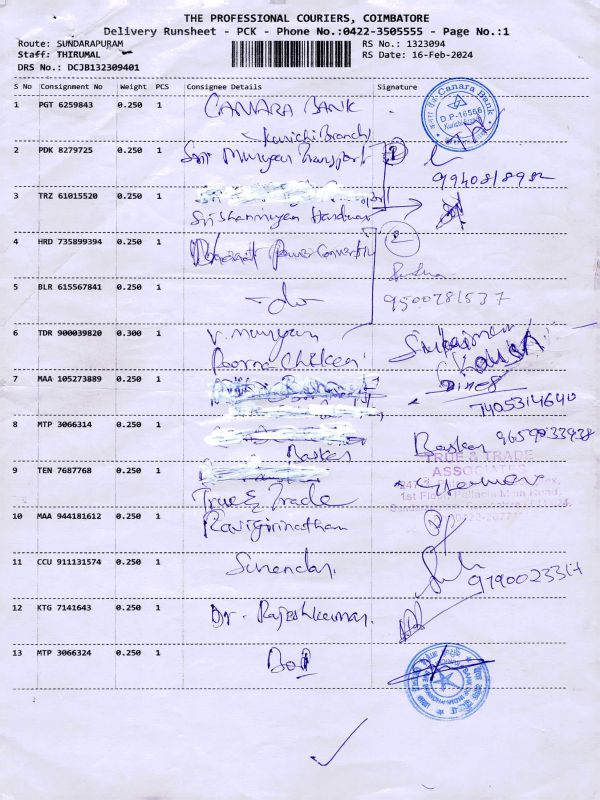 THE PROFESSIONAL COURIERS, COIMBATORE
Delivery Runsheet - PCK - Phone No.:0422-3505555 - Page No.:1
Route: SUNDARAPURAM
Staff: THIRUMAL
DRS No.: DCJB132309401
RS No.: 1323094
RS Date: 16-Feb-2024
S No Consignment No Weight PCS Consignee Details Signature
1 PGT 6259843 0.250 1 CANARA BANK
Kurichi Branch
Canara Bank
D.P-16566
2 PDK 8279725 0.250 1 Sri Murugan Transport 1
9940818982
3 TRZ 61015520 0.250 1
Sri Shanmugan Hardware
4 HRD 735899394 0.250 1 Power 2
5 BLR 615567841 0.250 1 -do- 9500781537
6 TDR 900039820 0.300 1 V. Murugan
Poorna Chicken
7 MAA 105273889 0.250 1
7405314640
8 MTP 3066314 0.250 1 Baskar Baskar 9659033938
9 TEN 7687768 0.250 1
True & Trade
TRUE & TRADE
ASSOCIATES
10 MAA 944181612 0.250 1 Ravigirinathan
11 CCU 911131574 0.250 1 Surendar. 9790023317
12 KTG 7141643 0.250 1 Dr. Rajeshkumar.
13 MTP 3066324 0.250 1 BOI